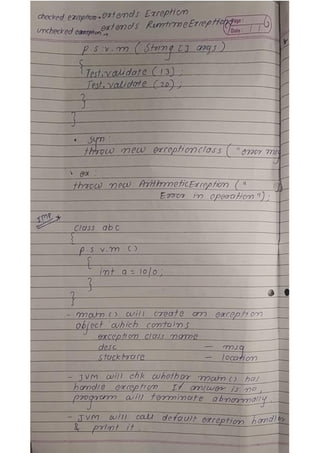 checked exception - extends Exception
unchecked exception - extends RuntimeException
Page:
Date:
P. S v. m ( String [] args )
{
Test. validate ( 13 ) ;
Test. validate ( 20 ) ;
}
}
• Syn
throw new exceptionclass ( " error
• ex
throw new ArithmeticException ( "
Error in operation " ) ;
IMP
class abc
{
p s v. m ( )
{
int a = 10/0 ;
}
}
- main() will create an exception
object which contains
exception class name
desc - msg
stacktrace - location
- JVM will chk whether main() has
handle exception If answer is no,
program will terminate abnormally
- JVM will call default exception handler
& print it .